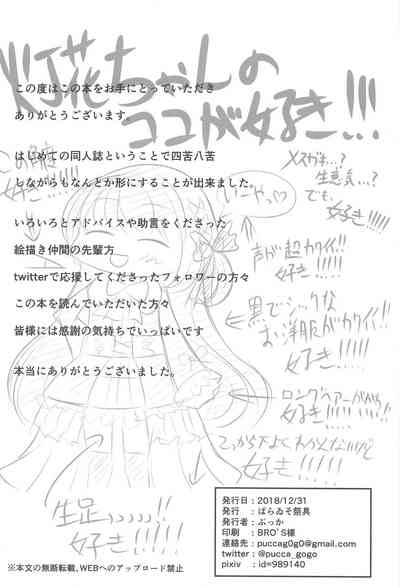 灯花ちゃんの
ココが好き!!!
この度はこの本をお手にとっていただき
ありがとうございます。
はじめての同人誌ということで四苦八苦
しながらもなんとか形にすることが出来ました。
いろいろとアドバイスや助言をくださった
絵描き仲間の先輩方
twitterで応援してくださったフォロワーの方々
この本を読んでいただいた方々
皆様には感謝の気持ちでいっぱいです
本当にありがとうございました。
好き!!!
メスガキ…?
生意気…?
でも、
好き!!!!
声が超カワイイ!!
好き!!!!
黒でシックな
お洋服がカワイイ!!
好き!!!!!
ロングヘアーが
好き!!!!!
ここから下よくわかんないけど
好き!!!!!
生足
好き!!!!
発行日：2018/12/31
発行：ばらゐそ祭具
発行者：ぷっか
印刷：BRO'S様
連絡先：puccag0g0@gmail.com
twitter：@pucca_gogo
pixiv：id=989140
※本文の無断転載,WEBへのアップロード禁止